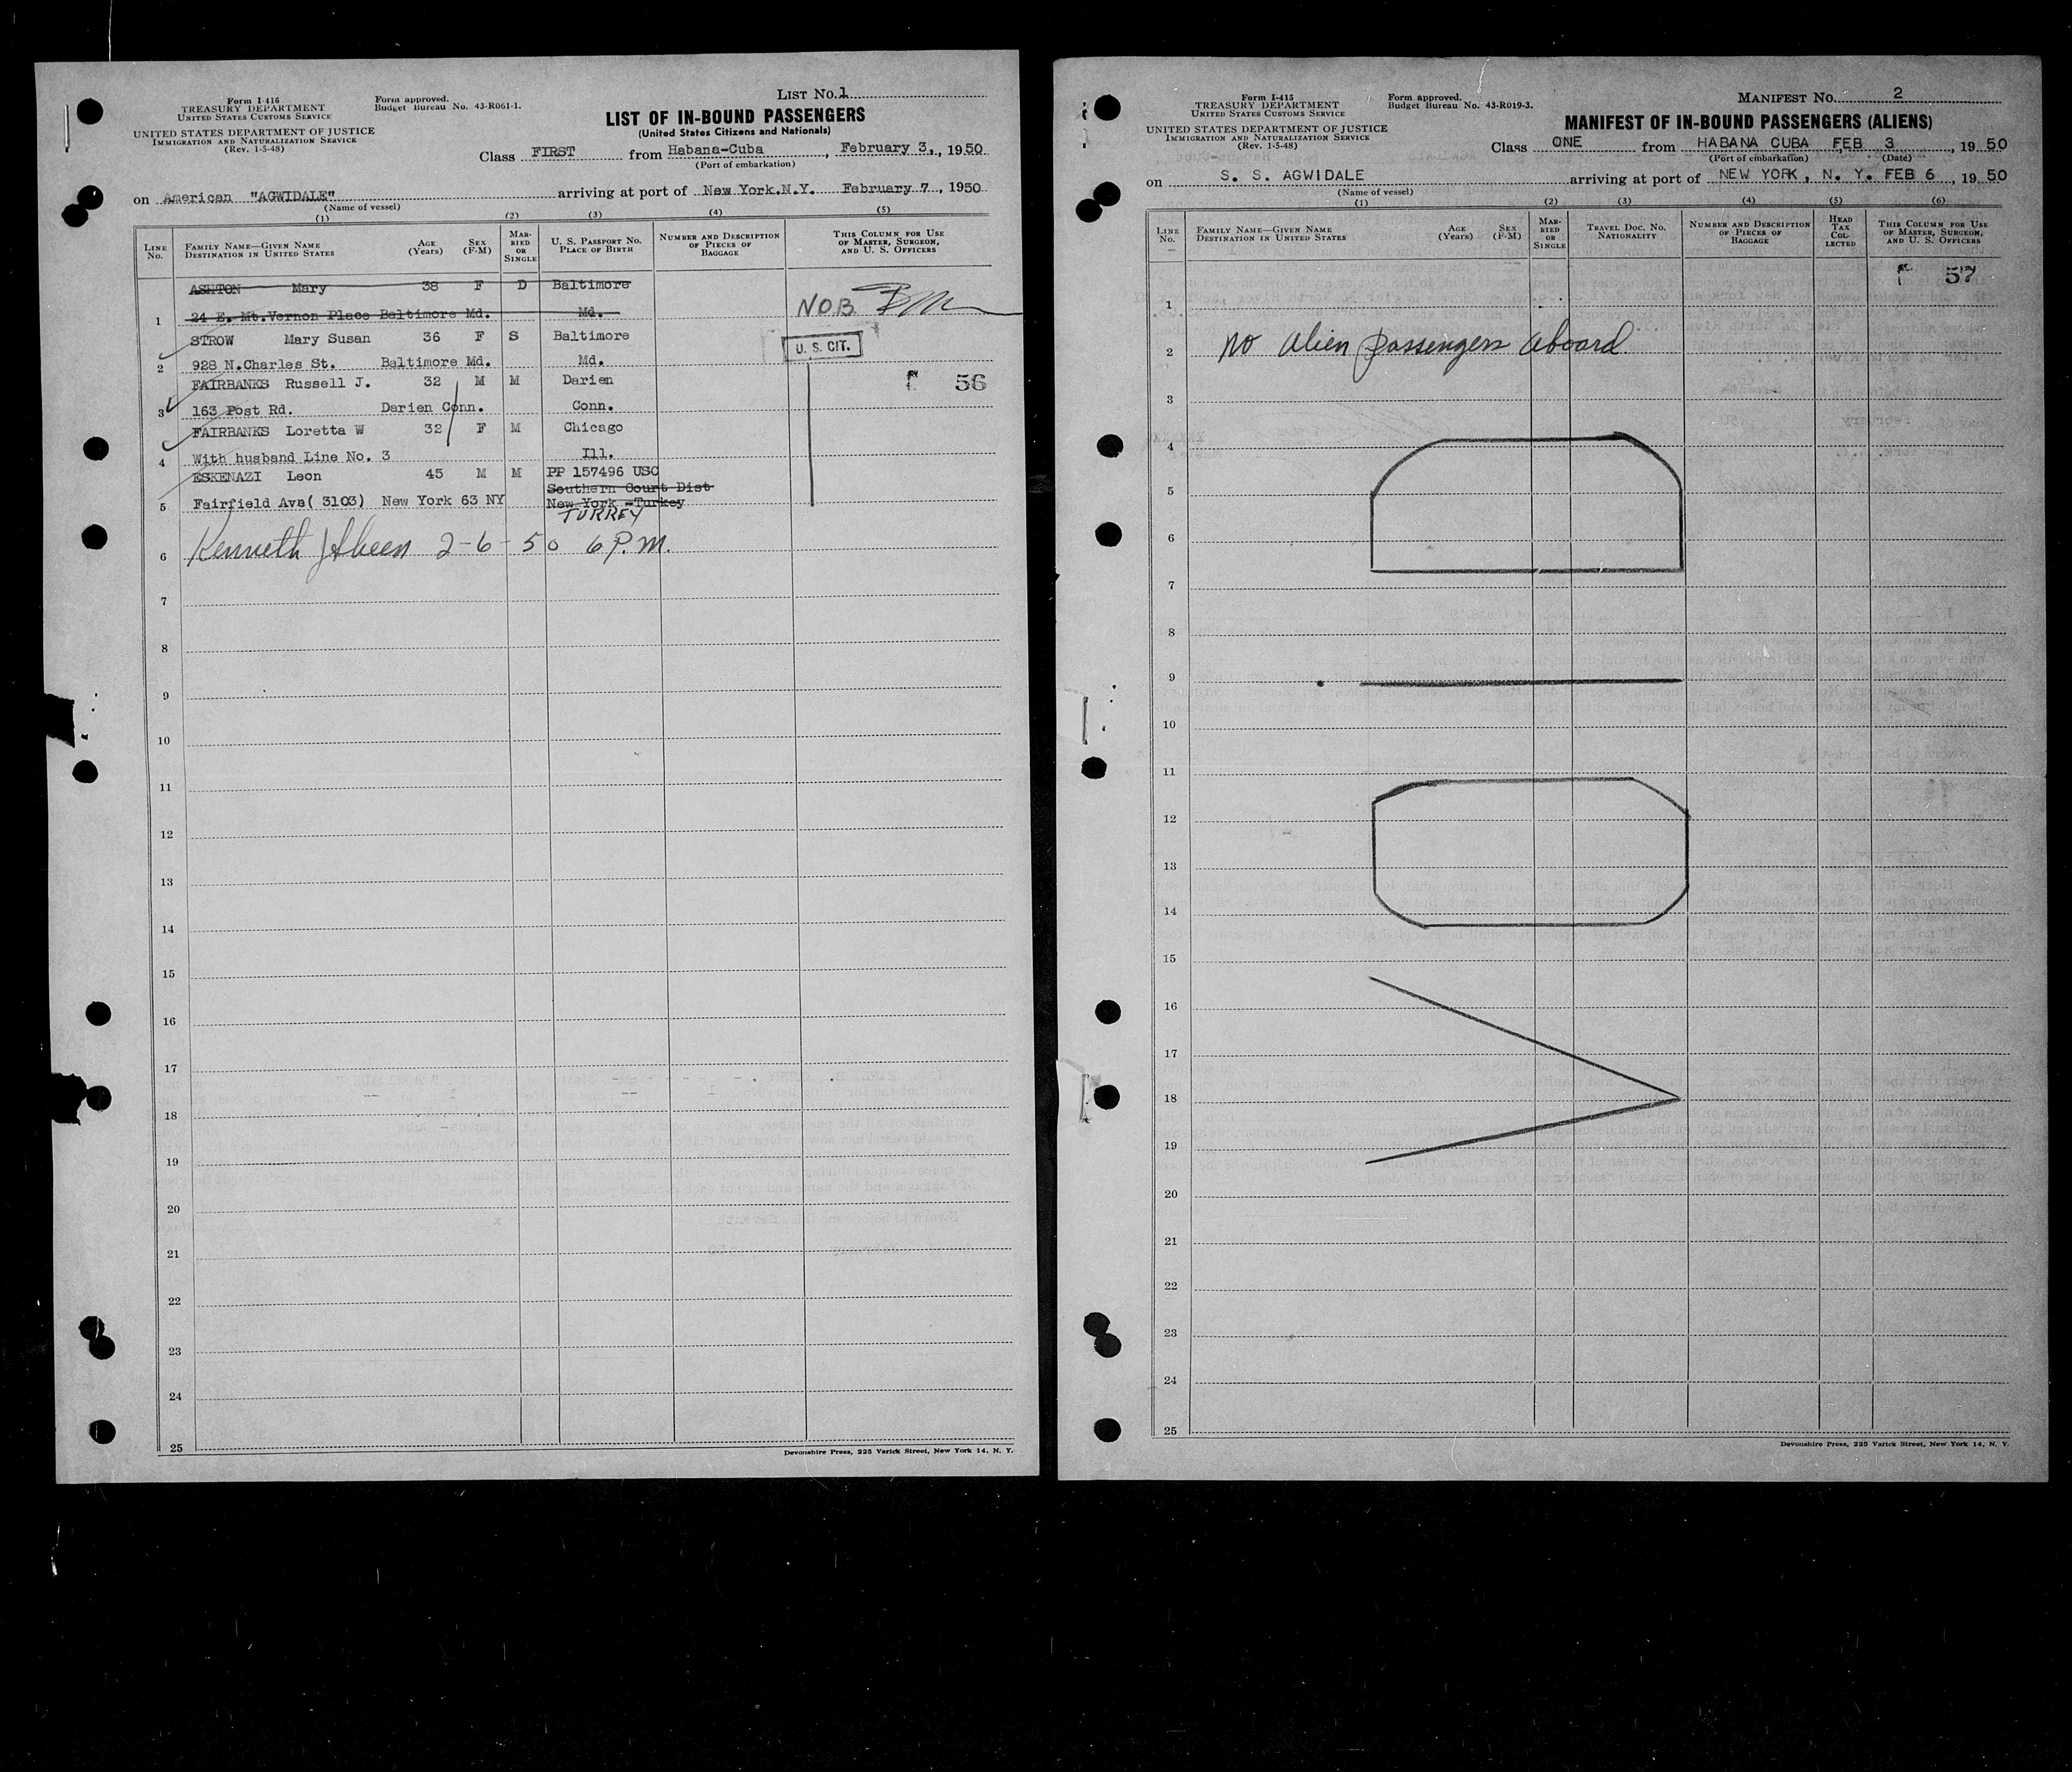 Form I-416
TREASURY DEPARTMENT
UNITED STATES CUSTOMS SERVICE
UNITED STATES DEPARTMENT OF JUSTICE
IMMIGRATION AND NATURALIZATION SERVICE
(Rev. 1-5-48)
Form approved.
Budget Bureau No. 43-R061-1.
LIST NO. 1
LIST OF IN-BOUND PASSENGERS
(United States Citizens and Nationals)
Class FIRST from Habana-Cuba, February 3., 1950
(Port of embarkation)
on American "AGWIDALE" arriving at port of New York.N.Y. February 7, 1950
(Name of vessel)
(1) (2) (3) (4) (5)
LINE NO.
FAMILY NAME—GIVEN NAME
DESTINATION IN UNITED STATES
AGE (Years)
SEX (F-M)
MARRIED OR SINGLE
U. S. PASSPORT NO.
PLACE OF BIRTH
NUMBER AND DESCRIPTION OF PIECES OF BAGGAGE
THIS COLUMN FOR USE OF MASTER, SURGEON, AND U. S. OFFICERS
ASHTON Mary 38 F D Baltimore
1 24 E. Mt.Vernon Place Baltimore Md. Md. N.O.B.
STROW Mary Susan 36 F S Baltimore
U. S. CIT.
2 928 N.Charles St. Baltimore Md. Md.
FAIRBANKS Russell J. 32 M M Darien 56
3 163 Post Rd. Darien Conn. Conn.
FAIRBANKS Loretta W 32 F M Chicago
4 With husband Line No. 3 Ill.
ESKENAZI Leon 45 M M PP 157496 USC
Southern Court Dist
5 Fairfield Ave( 3103) New York 63 NY New York -Turkey
TURKEY
6 Kenneth 2-6-50 6 P.M.
7
8
9
10
11
12
13
14
15
16
17
18
19
20
21
22
23
24
25
Devonshire Press, 225 Varick Street, New York 14, N. Y.
Form I-415
TREASURY DEPARTMENT
UNITED STATES CUSTOMS SERVICE
UNITED STATES DEPARTMENT OF JUSTICE
IMMIGRATION AND NATURALIZATION SERVICE
(Rev. 1-5-48)
Form approved.
Budget Bureau No. 43-R019-3.
MANIFEST NO. 2
MANIFEST OF IN-BOUND PASSENGERS (ALIENS)
Class ONE from HABANA CUBA FEB 3, 1950
(Port of embarkation) (Date)
on S. S. AGWIDALE arriving at port of NEW YORK, N. Y. FEB 6, 1950
(Name of vessel)
(1) (2) (3) (4) (5) (6)
LINE NO.
FAMILY NAME—GIVEN NAME
DESTINATION IN UNITED STATES
AGE (Years)
SEX (F-M)
MARRIED OR SINGLE
TRAVEL DOC. NO.
NATIONALITY
NUMBER AND DESCRIPTION OF PIECES OF BAGGAGE
HEAD TAX COLLECTED
THIS COLUMN FOR USE OF MASTER, SURGEON, AND U. S. OFFICERS
57
1
2 No alien passengers aboard.
3
4
5
6
7
8
9
10
11
12
13
14
15
16
17
18
19
20
21
22
23
24
25
Devonshire Press, 225 Varick Street, New York 14, N. Y.